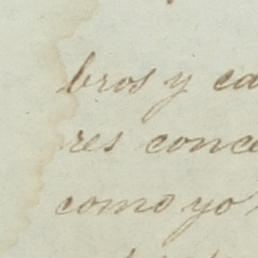 bros y ca
res conce
como yo